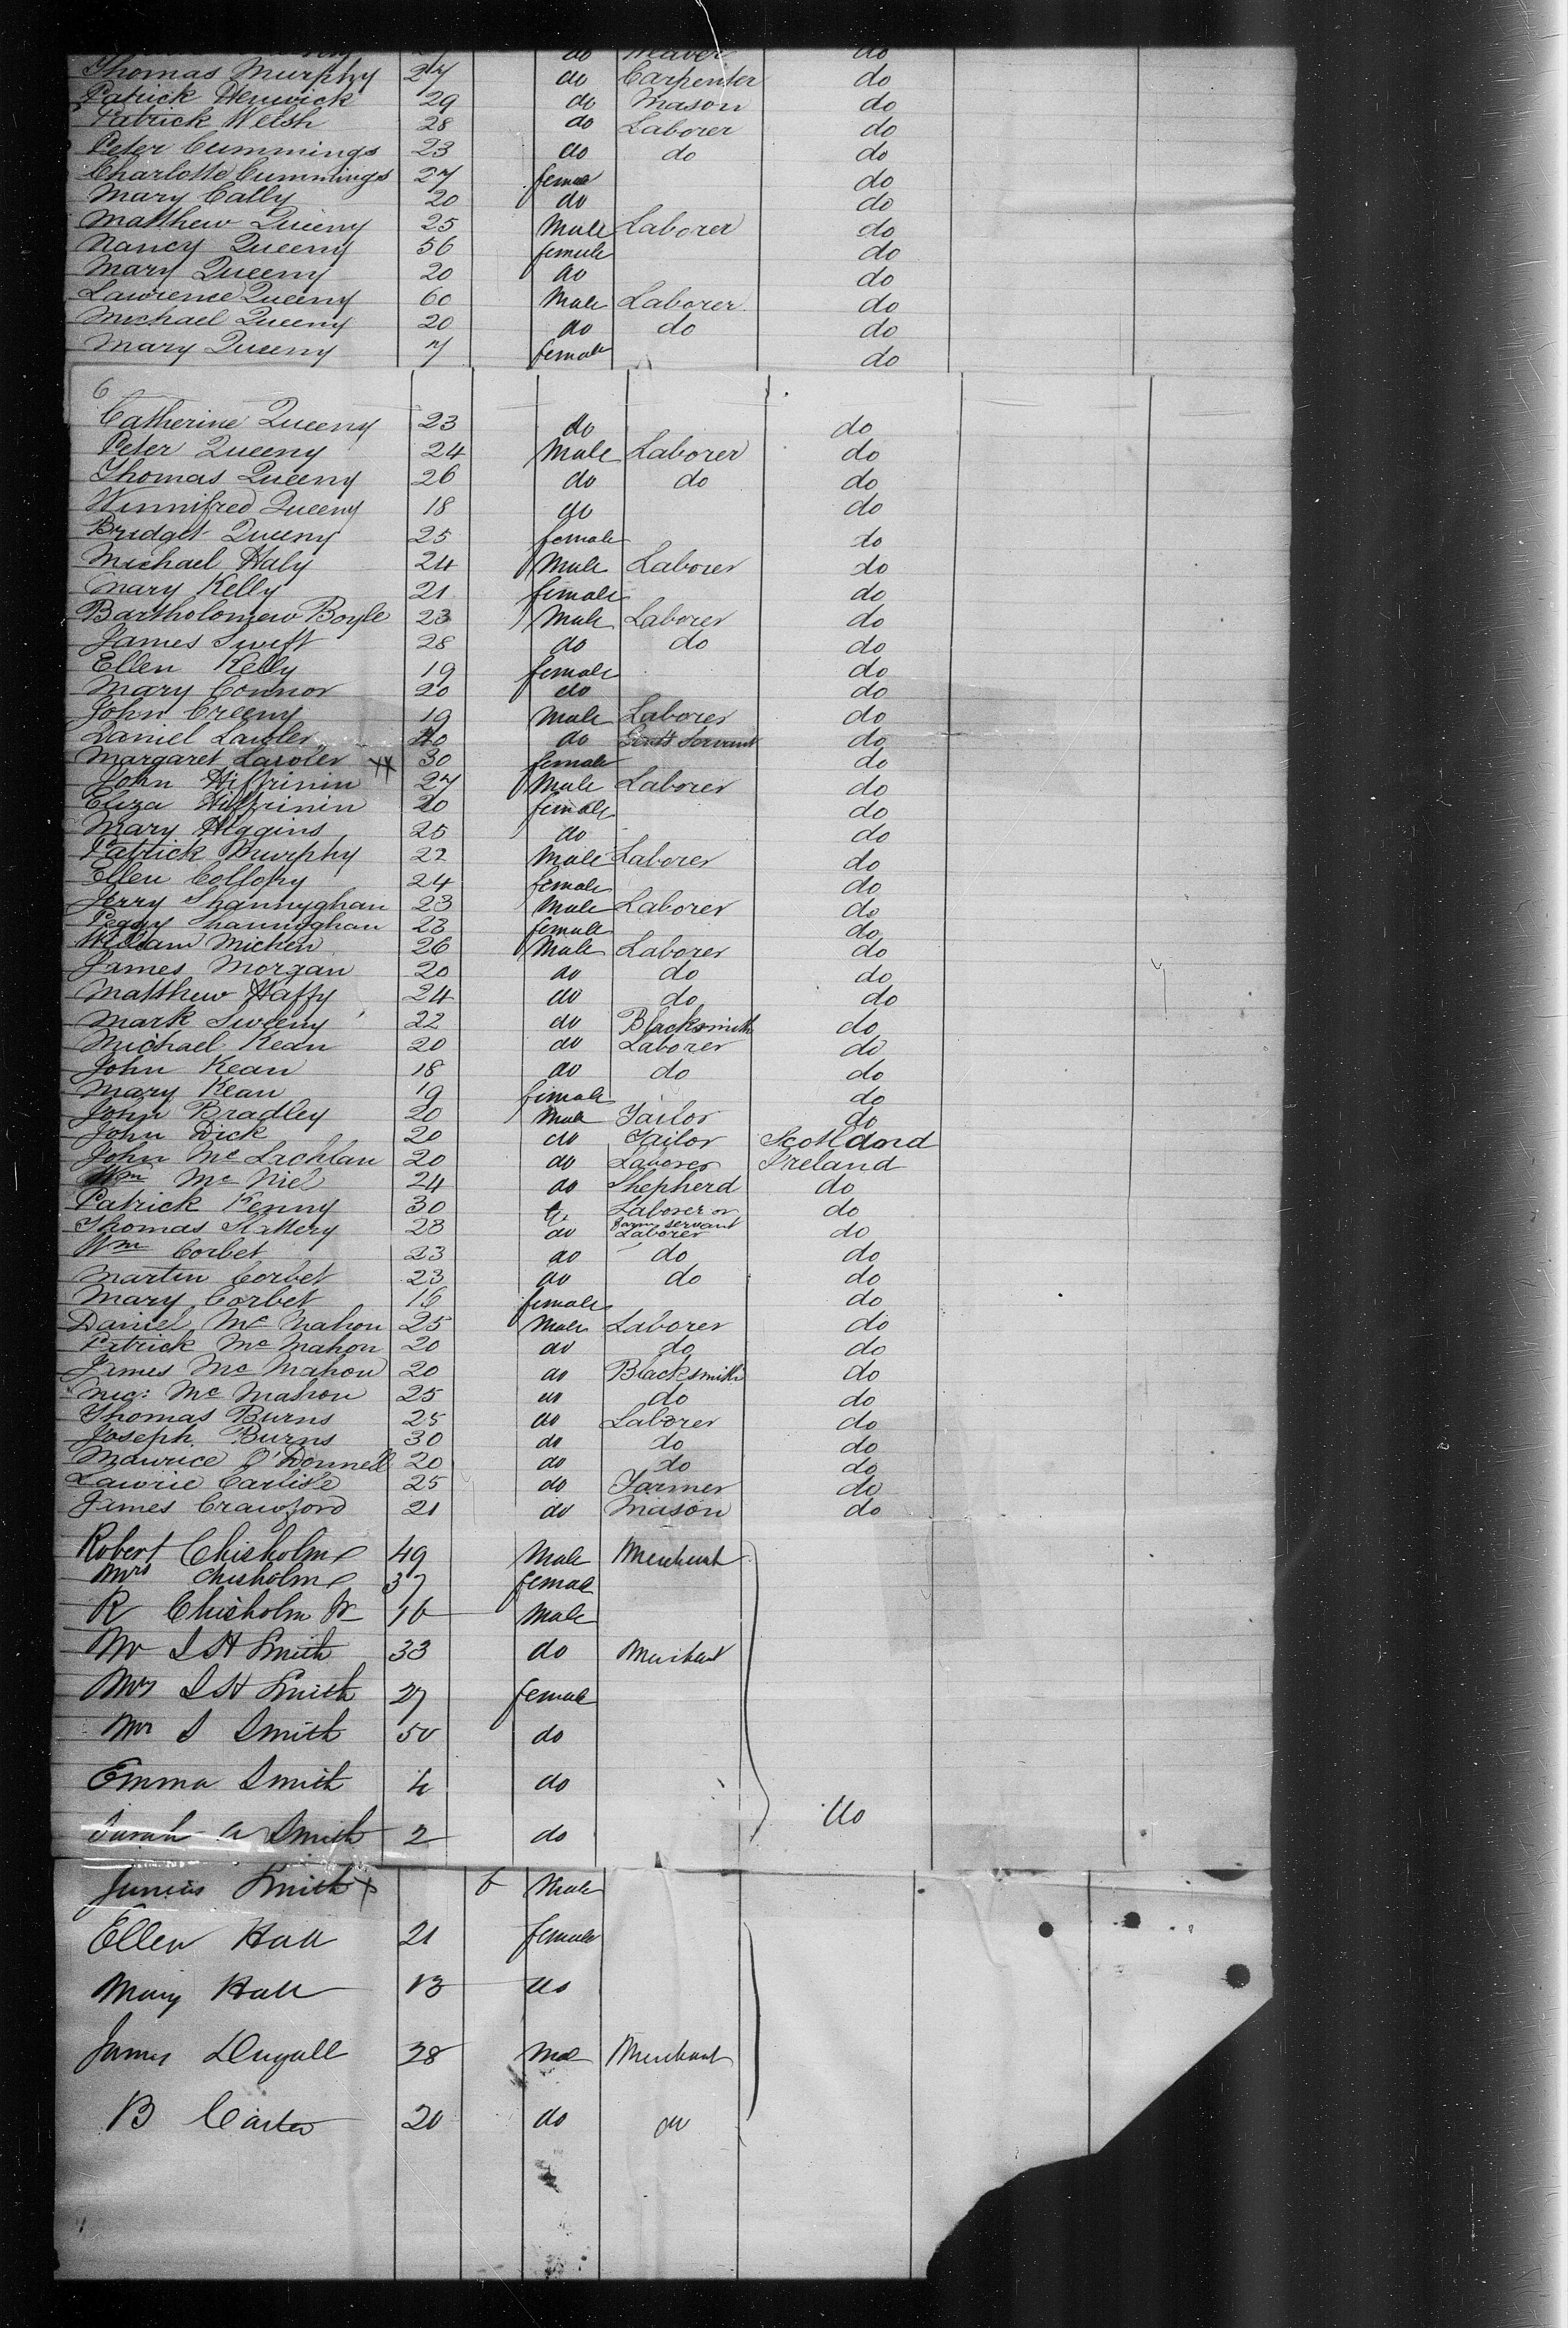 do do
Thomas Murphy 27 do Carpenter do
Patrick Henwick 29 do Mason do
Patrick Welsh 28 do Laborer do
Peter Cummings 23 do do do
Charlotte Cummings 27 female do
Mary Cally 20 do do
Matthew Queeny 25 Male Laborer do
Nancy Queeny 56 female do
Mary Queeny 20 do do
Lawrence Queeny 60 Male Laborer do
Michael Queeny 20 do do do
Mary Queeny 7 female do
6
Catherine Queeny 23 do do
Peter Queeny 24 Male Laborer do
Thomas Queeny 26 do do do
Winnifred Queeny 18 do do
Bridget Queeny 25 female do
Michael Haly 24 Male Laborer do
Mary Kelly 21 female do
Bartholomew Boyle 23 Male Laborer do
James Swift 28 do do do
Ellen Kelly 19 female do
Mary Connor 20 do do
John Creeny 19 Male Laborer do
Daniel Lawler 40 do Servant do
Margaret Lawler 30 female do
John 27 Male Laborer do
Eliza 20 female do
Mary Higgins 25 do do
Patrick Murphy 22 Male Laborer do
Ellen Colloky 24 female do
Jerry Shannyghan 23 Male Laborer do
Peggy Shannyghan 23 female do
William Micken 26 Male Laborer do
James Morgan 20 do do do
Matthew Haffy 24 do do do
Mark Sweeny 22 do Blacksmith do
Michael Kean 20 do Laborer do
John Kean 18 do do do
Mary Kean 19 female do
John Bradley 20 Male Tailor do
John Dick 20 do Tailor Scotland
John Mc Lachlan 20 do Laborer Ireland
Wm Mc Niel 24 do Shepherd do
Patrick Kenny 30 Laborer or farm servant do
Thomas Slattery 28 do Laborer do
Wm Corbet 23 do do do
Martin Corbet 23 do do do
Mary Corbet 16 female do
Daniel Mc Mahon 25 Male Laborer do
Patrick Mc Mahon 20 do do do
James Mc Mahon 20 do Blacksmith do
Mc Mahon 25 do do do
Thomas Burns 25 do Laborer do
Joseph Burns 30 do do do
Maurice O'Donnell 20 do do do
Lawrie Carlisle 25 do Farmer do
James Crawford 21 do Mason do
Robert Chisholme 49 Male Merchant
Mrs Chisholme 37 female
R Chisholm Jr 16 Male
Mr S H Smith 33 do Merchant
Mrs S H Smith 27 female
S Smith 50 do
Emma Smith 4 do
Sarah A Smith 2 do do
Junius Smith 6 Male
Ellen Hall 21 female
Mary Hall 13 do
James Dugall 38 Male Merchant
B Carter 20 do do